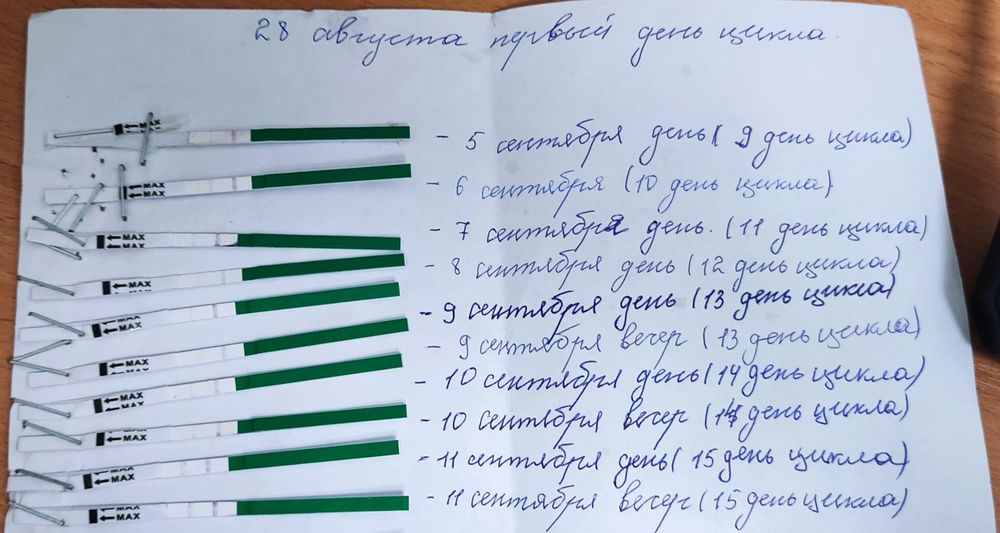 28 августа первый день цикла.
MAX - 5 сентября день (9 день цикла)
MAX MAX - 6 сентября (10 день цикла)
MAX MAX - 7 сентября день. (11 день цикла)
MAX - 8 сентября день (12 день цикла)
MAX MAX - 9 сентября день (13 день цикла)
MAX - 9 сентября вечер (13 день цикла)
MAX MAX - 10 сентября день (14 день цикла)
MAX - 10 сентября вечер (14 день цикла)
MAX - 11 сентября день (15 день цикла)
MAX MAX - 11 сентября вечер (15 день цикла)